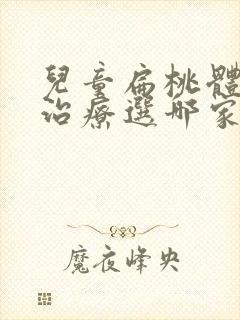 兒童扁桃體
治療選哪家
魔夜峰央